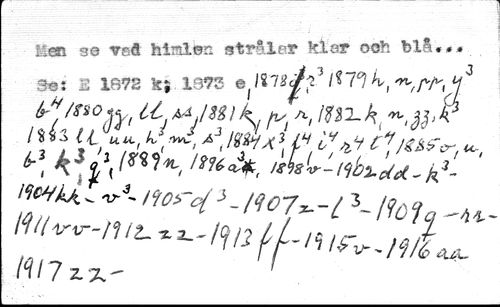 Men se vad himlen strålar klar och blå...
Se: E 1872 k; 1873 e, 1878 r³ 1879 h, n, pp, y³
b⁴ 1880 gg, ll, ss, 1881 k, p, r, 1882 k, n, zz, k³
1883 ll, uu, h³, m³, s³, 1884 x³, f⁴, i⁴, r⁴, t⁴, 1885 v, u,
b³, k³, q³, 1889 n, 1896 a³, 1898 v - 1902 dd - k³ -
1904 kk - v³ - 1905 d³ - 1907 z - l³ - 1909 q - rr -
1911 vv - 1912 zz - 1913 ff - 1915 v - 1916 aa
1917 zz -